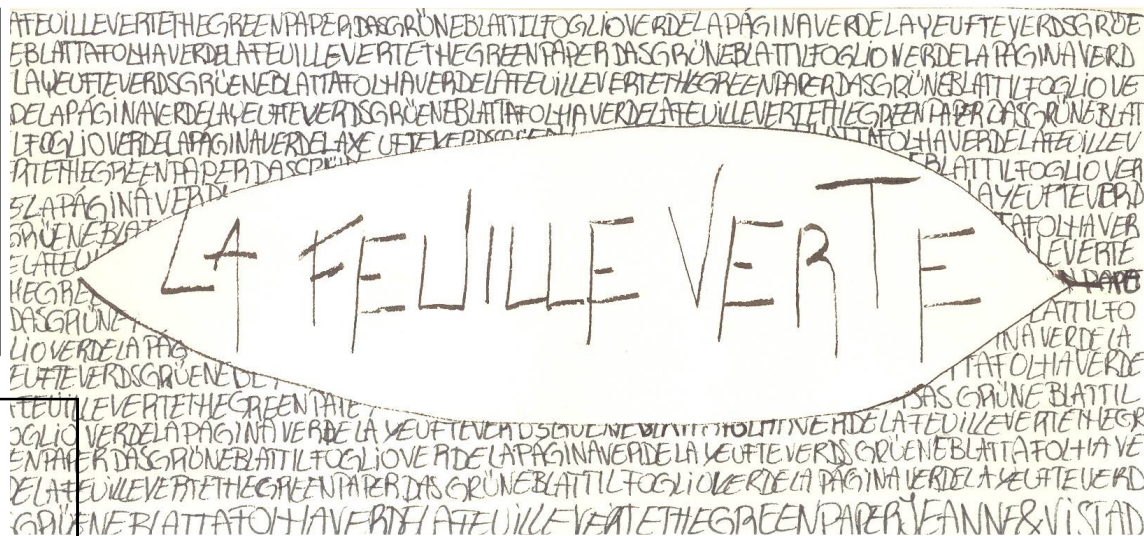 AFEUILLEVERTETHEGREENPAPERDASGRÜNEBLATTILFOGLIOVERDELAPÁGINAVERDELAYEUFTEVERDSGRÜE
EBLATTAFOLHAVERDELAFEUILLEVERTETHEGREENPAPERDASGRÜNEBLATTILFOGLIOVERDELAPÁGINAVERD
LAYEUFTEVERDSGRÜENEBLATTAFOLHAVERDELAFEUILLEVERTETHEGREENPAPERDASGRÜNEBLATTILFOGLIOVE
DELAPÁGINAVERDELAYEUFTEVERDSGRÜENEBLATTAFOLHAVERDELAFEUILLEVERTETHEGREENPAPERDASGRÜNEBLAT
LFOGLIOVERDELAPAGINAVERDELAYEUFTEVERDSGRÜEN LATTAFOLHAVERDELAFEUILLEV
RTETHEGREENPAPERDASGRÜ BLATTILFOGLIOVER
ELAPÁGINAVERD LAYEUFTEVERD
GRÜENEBLAT TAFOLHAVER
ELAFEU LEVERTE
HEGREE NPAPE
DASGRÜNE LATTILFO
LIOVERDELAPÁG INAVERDELA
EUFTEVERDSGRÜENEBL TTAFOLHAVERDE
LA FEUILLE VERTE
FEUILLEVERTETHEGREENPAPE DASGRÜNEBLATTIL
OGLIOVERDELAPÁGINAVERDELAYEUFTEVERDSGRÜENEBLATTAFOLHAVERDELAFEUILLEVERTETHEGR
ENPAPERDASGRÜNEBLATTILFOGLIOVERDELAPÁGINAVERDELAYEUFTEVERDSGRÜENEBLATTAFOLHAVE
DELAFEUILLEVERTETHEGREENPAPERDASGRÜNEBLATTILFOGLIOVERDELAPÁGINAVERDELAYEUFTEVERD
GRÜENEBLATTAFOLHAVERDELAFEUILLEVERTETHEGREENPAPERJEANNE&VISTAD